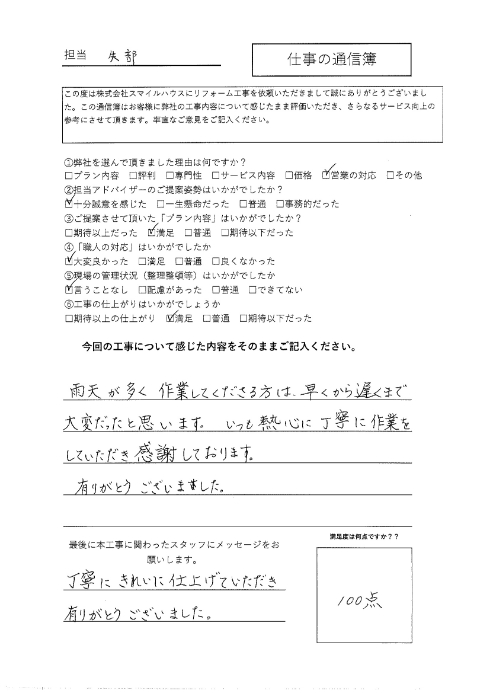 担当 矢部
仕事の通信簿
この度は株式会社スマイルハウスにリフォーム工事を依頼いただきまして誠にありがとうございまし
た。この通信簿はお客様に弊社の工事内容について感じたまま評価いただき、さらなるサービス向上の
参考にさせて頂きます。率直なご意見をご記入ください。
①弊社を選んで頂きました理由は何ですか？
□プラン内容 □評判 □専門性 □サービス内容 □価格 ☑営業の対応 □その他
②担当アドバイザーのご提案姿勢はいかがでしたか？
☑十分誠意を感じた □一生懸命だった □普通 □事務的だった
③ご提案させて頂いた「プラン内容」はいかがでしたか？
□期待以上だった ☑満足 □普通 □期待以下だった
④「職人の対応」はいかがでしたか
☑大変良かった □満足 □普通 □良くなかった
⑤現場の管理状況（整理整頓等）はいかがでしたか
☑言うことなし □配慮があった □普通 □できてない
⑥工事の仕上がりはいかがでしょうか
□期待以上の仕上がり ☑満足 □普通 □期待以下だった
今回の工事について感じた内容をそのままご記入ください。
雨天が多く作業してくださる方は、早くから遅くまで
大変だったと思います。いつも熱心に丁寧に作業を
していただき感謝しております。
有りがとうございました。
最後に本工事に関わったスタッフにメッセージをお
願いします。
丁寧にきれいに仕上げていただき
有りがとうございました。
満足度は何点ですか？？
100点